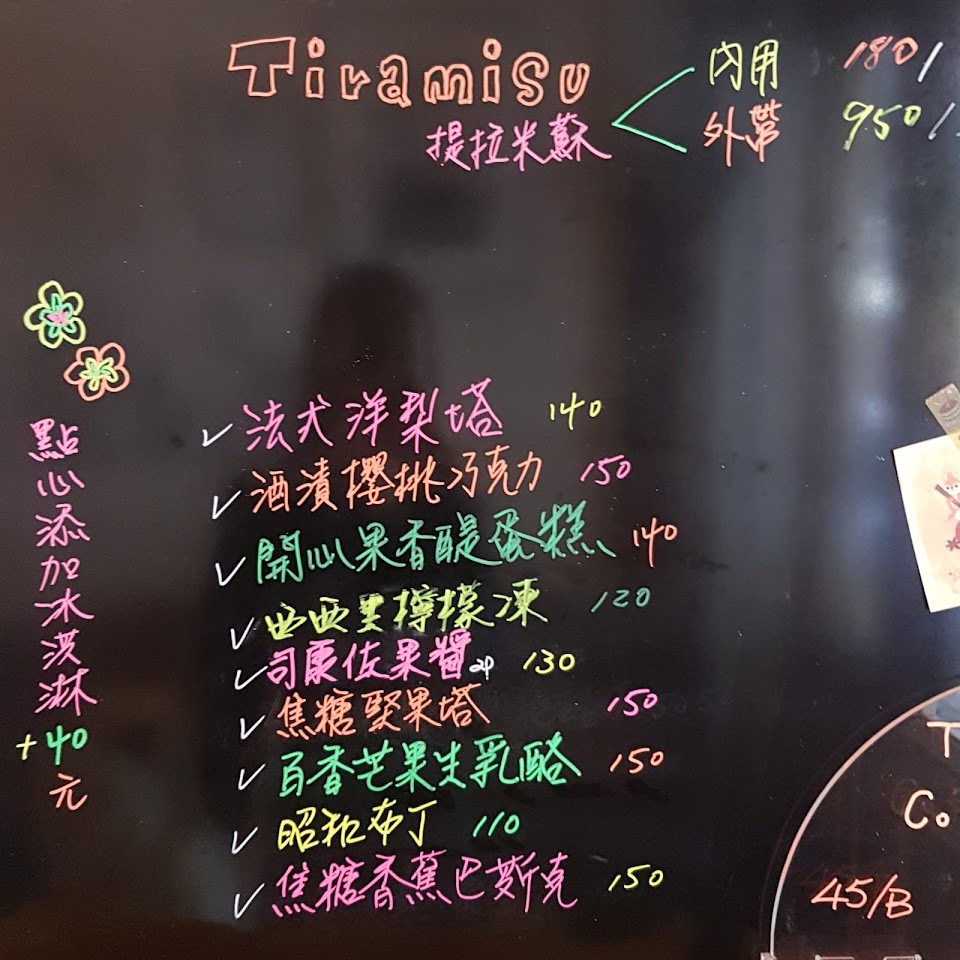 Tiramisu
提拉米蘇
內用 180/
外帶 950/
點心添加冰淇淋+40元
法犬洋梨塔 140
酒漬櫻桃巧克力 150
開心果香醍蛋糕 140
西西里檸檬凍 120
司康佐果醬 2p 130
焦糖堅果塔 150
百香芒果生乳酪 150
昭和布丁 110
焦糖香蕉巴斯克 150
T
Co
45/B